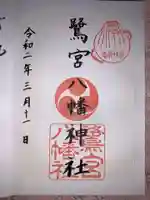 鷺宮八幡神社
令和二年三月十一日
鷺宮八幡社